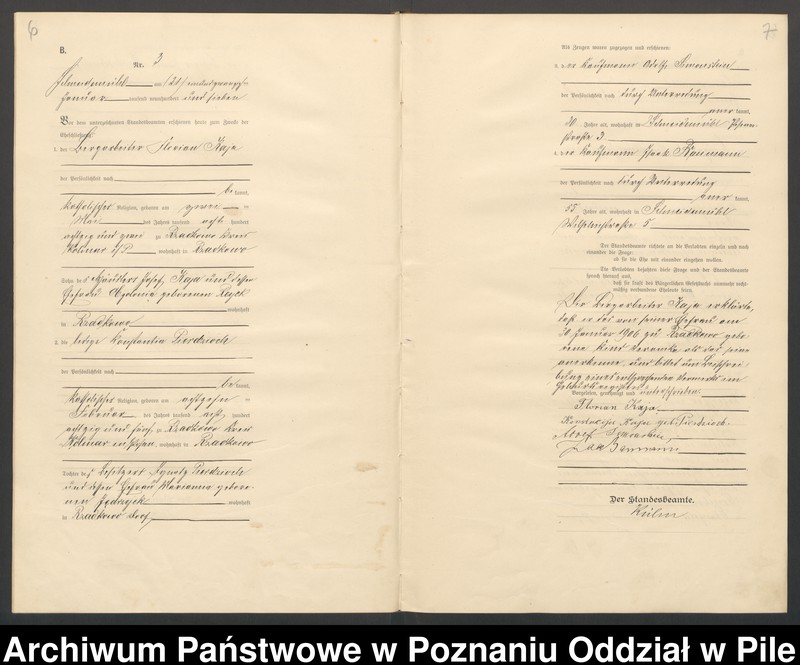 6
B.
Nr. 3
Schneidemühl am
Januar tausend neunhundert und sieben
Vor dem unterzeichneten Standesbeamten erschienen heute zum Zweck der
Eheschließung:
1. der Bergarbeiter Florian Kaja
der Persönlichkeit nach
be kannt,
katholischer Religion, geboren am
Mai des Jahres tausend acht hundert
achtzig und zwei zu Rzadkowo Kreis
Kolmar i/P wohnhaft in Rzadkowo
Sohn des Händlers Josef Kaja und dessen
Ehefrau geborenen
wohnhaft
in Rzadkowo
2. die ledige Konstantia Pierdzioch
der Persönlichkeit nach
be kannt,
katholischer Religion, geboren am achtzehn
Februar des Jahres tausend acht hundert
achtzig und fünf zu Rzadkowo Kreis
Kolmar in Posen, wohnhaft in Rzadkowo
Tochter des Besitzers Ignatz Pierdzioch
und dessen Ehefrau Marianna gebore-
nen wohnhaft
in Rzadkowo Dorf
7
Als Zeugen waren zugezogen und erschienen:
3. der Kaufmann Adolf
der Persönlichkeit nach durch Unterredung
aner kannt,
30 Jahre alt, wohnhaft in Schneidemühl
straße 3.
4. der Kaufmann Isaak
der Persönlichkeit nach durch Unterredung
aner kannt,
55 Jahre alt, wohnhaft in Schneidemühl
Wilhelmstraße 5
Der Standesbeamte richtete an die Verlobten einzeln und nach
einander die Frage:
ob sie die Ehe mit einander eingehen wollen.
Die Verlobten bejahten diese Frage und der Standesbeamte
sprach hierauf aus,
daß sie kraft des Bürgerlichen Gesetzbuchs nunmehr recht-
mäßig verbundene Eheleute seien.
Der Bergarbeiter Kaja erklärte,
daß er das von seiner Ehefrau am
Januar 1906 zu Rzadkowo gebo-
rene Kind Veronika als das seine
anerkenne, und bittet um Beischrei-
bung eines entsprechenden Vermerks im
Geburtsregister.
Vorgelesen, genehmigt und unterschrieben
Florian Kaja
Konstancija Kaja geb. Pierdzioch
Adolf
Der Standesbeamte.
Archiwum Państwowe w Poznaniu Oddział w Pile